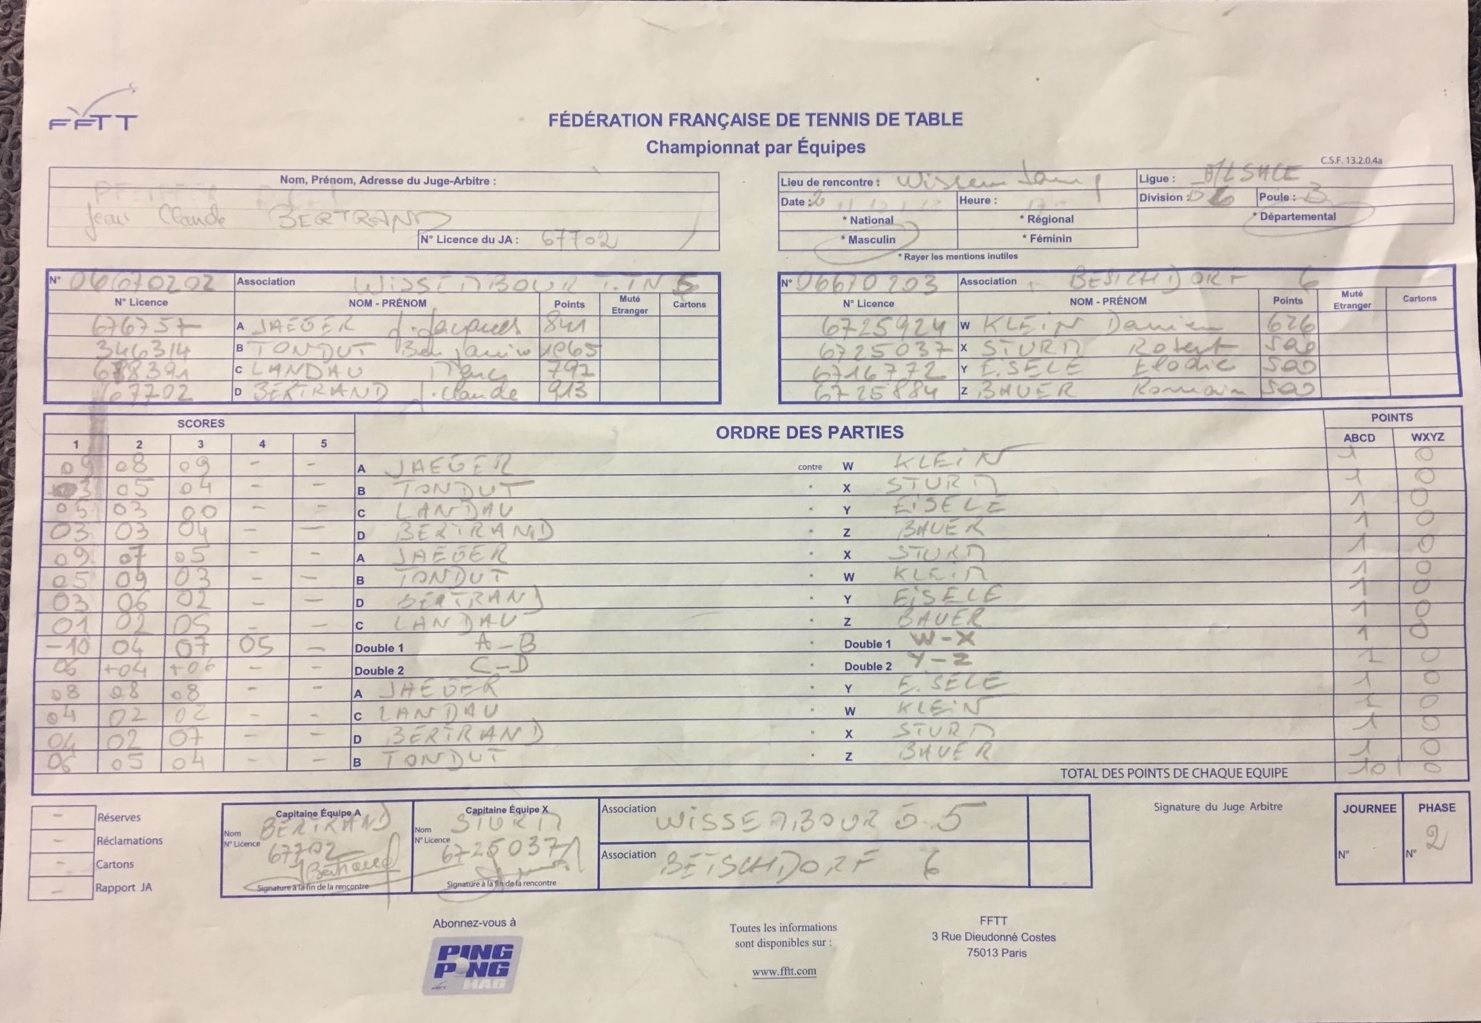 FFTT
FÉDÉRATION FRANÇAISE DE TENNIS DE TABLE
Championnat par Équipes
C.S.F. 13.2.0.4a
Nom, Prénom, Adresse du Juge-Arbitre :
Jean Claude BERTRAND
N° Licence du JA : 67702
Lieu de rencontre :
Ligue : ALSACE
Date :
Heure :
Division :
Poule : B
* National * Régional * Départemental
* Masculin * Féminin
* Rayer les mentions inutiles
N° 06670202 Association WISSEMBOURG
N° Licence NOM - PRÉNOM Points Muté Etranger Cartons
676757 A JAEGER J.Jacques 841
346314 B TONDUT Benjamin 1065
678391 C LANDAU 792
67702 D BERTRAND J.Claude 913
N° 06670203 Association BETSCHDORF 6
N° Licence NOM - PRÉNOM Points Muté Etranger Cartons
6725924 W KLEIN Damien 626
6725037 X STURM Robert 500
6716772 Y EISELE Elodie 500
6725884 Z BAUER Romain 500
SCORES ORDRE DES PARTIES POINTS
1 2 3 4 5 ABCD WXYZ
09 08 09 - - A JAEGER contre W KLEIN 1 0
03 05 04 - - B TONDUT · X STURM 1 0
05 03 00 - - C LANDAU · Y EISELE 1 0
03 03 04 - - D BERTRAND · Z BAUER 1 0
09 07 05 - - A JAEGER · X STURM 1 0
05 09 03 - - B TONDUT · W KLEIN 1 0
03 06 02 - - D BERTRAND · Y EISELE 1 0
01 02 05 - - C LANDAU · Z BAUER 1 0
-10 04 07 05 - Double 1 A-B · Double 1 W-X 1 0
06 +04 +06 - - Double 2 C-D · Double 2 Y-Z 1 0
08 08 08 - - A JAEGER · Y EISELE 1 0
04 02 02 - - C LANDAU · W KLEIN 1 0
04 02 07 - - D BERTRAND · X STURM 1 0
06 05 04 - - B TONDUT · Z BAUER 1 0
TOTAL DES POINTS DE CHAQUE EQUIPE 0
- Réserves
- Réclamations
- Cartons
- Rapport JA
Capitaine Équipe A
Nom BERTRAND
N° Licence 67702
Signature à la fin de la rencontre
Capitaine Équipe X
Nom STURM
N° Licence 6725037
Signature à la fin de la rencontre
Association WISSEMBOURG 5
Association BETSCHDORF 6
Signature du Juge Arbitre
JOURNEE PHASE
N° N° 2
Abonnez-vous à
PING PONG MAG
Toutes les informations
sont disponibles sur :
www.fftt.com
FFTT
3 Rue Dieudonné Costes
75013 Paris